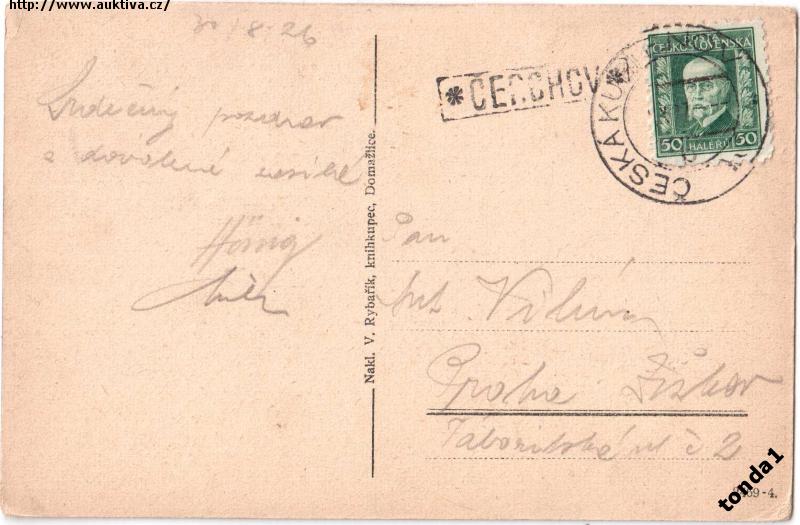 http://www.auktiva.cz/
30/8.26
Srdečný pozdrav
z dovolené
Hönig
Nakl. V. Rybařík, knihkupec, Domažlice.
* ČERCHOV *
ČESKÁ KU
POŠTA
ČESKOSLOVENSKA
50 HALÉŘŮ 50
Pan
Ant. Vilím
Praha Žižkov
Táboritská ul č 2
69-4.
tonda1